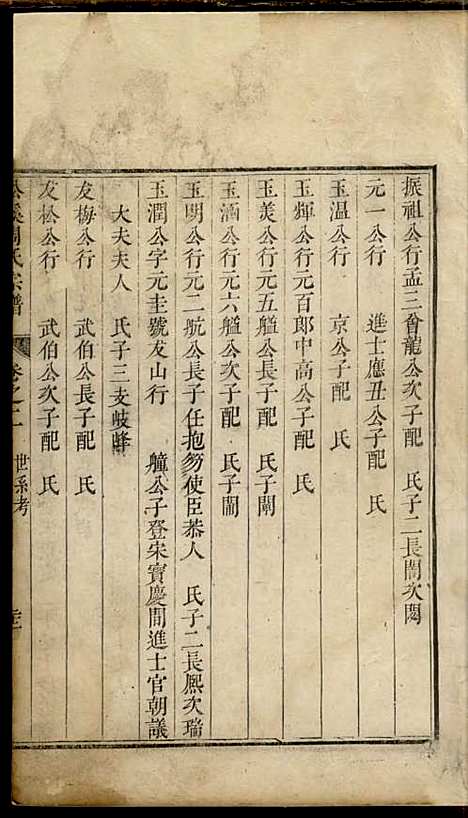 振祖公行孟三曾龍公次子配 氏子二長閙次閎
元一公行 進士應丑公子配 氏
玉温公行 京公子配 氏
玉輝公行元百郎中高公子配 氏
玉美公行元五艗公長子配 氏子闡
玉涵公行元六艗公次子配 氏子闓
玉明公行元二航公長子任抱笏使臣恭人 氏子二長熈次瑞
玉潤公字元圭號友山行 艟公子登宋寳慶間進士官朝議
大夫夫人 氏子三支岐峰
友梅公行 武伯公長子配 氏
友松公行 武伯公次子配 氏
周氏宗譜 卷之二 世系考